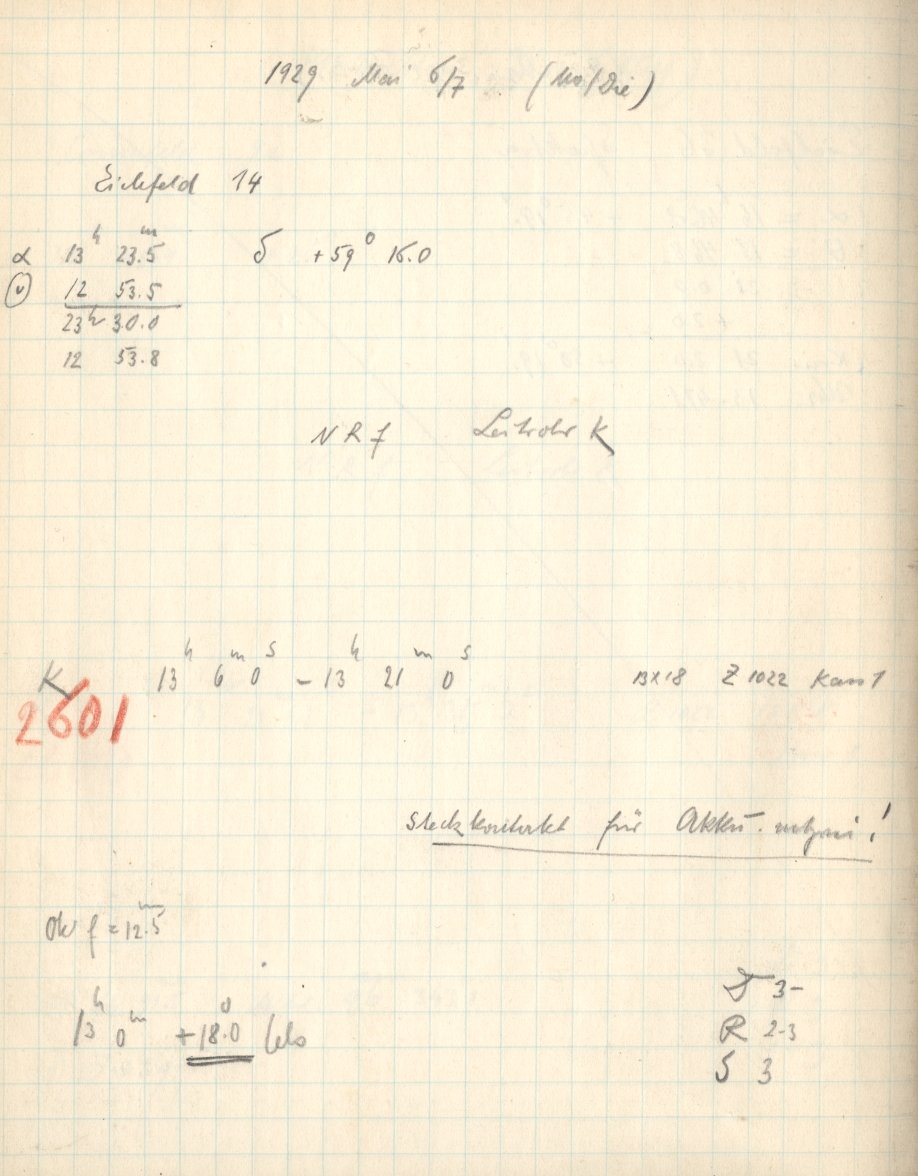 1929 Mai 6/7 (Mo/Die)
Eichfeld 14
α 13h 23.5m δ +59° 15.0
12 53.5
23h 30.0
12 53.8
NRf Leitrohr K
K 13h 6m 0s – 13h 21m 0s Z 1022 Kass 1
2601
Steckkontakt für Akku.
Ok f = 12.5m
13h 0m +18.0° Cels
3-
R 2-3
S 3